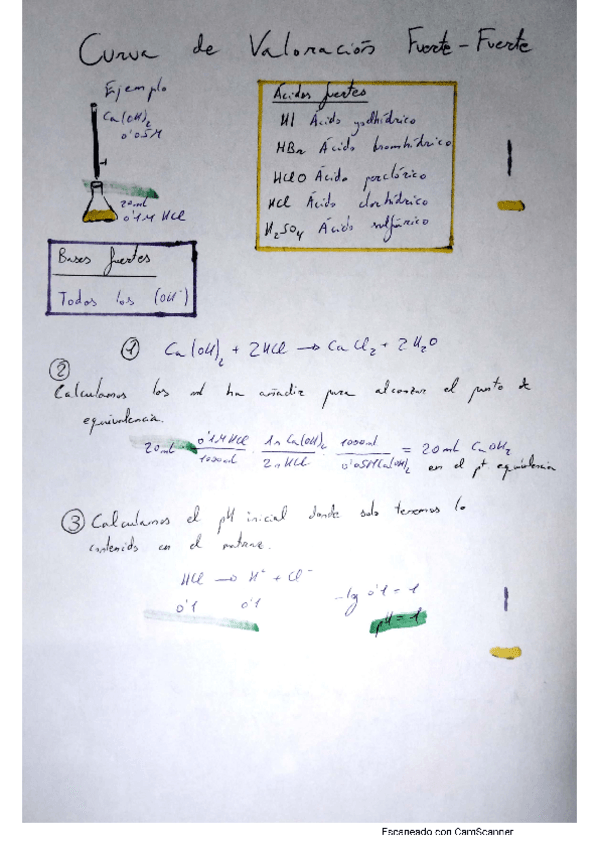 Curva de Valoración Fuerte-Fuerte
Ejemplo
Ca(OH)2
0'05M
20ml
0'1M HCl
Ácidos fuertes
HI Ácido yodhídrico
HBr Ácido bromhídrico
HClO Ácido perclórico
HCl Ácido clorhídrico
H2SO4 Ácido sulfúrico
Bases fuertes
Todos los (OH-)
① Ca(OH)2 + 2HCl → CaCl2 + 2H2O
②
Calculamos los ml ha añadir para alcanzar el punto de
equivalencia.
20ml · 0'1M HCl / 1000ml · 1n Ca(OH)2 / 2n HCl · 1000ml / 0'05M Ca(OH)2 = 20ml CaOH2
en el pt equivalencia
③ Calculamos el pH inicial donde solo tenemos lo
contenido en el matraz.
HCl → H+ + Cl-
0'1 0'1
-lg 0'1 = 1
pH = 1
Escaneado con CamScanner